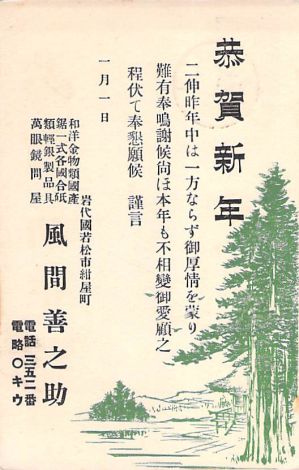 恭賀新年
二伸昨年中は一方ならず御厚情を蒙り
難有奉鳴謝候尙ほ本年も不相變御愛顧之
程伏て奉懇願候　謹言
一月一日
岩代國若松市紺屋町
和洋金物類國產
鋸一式各國合砥
類輕銀製品具
萬眼鏡問屋
風間善之助
電話三五二番
電略〇キウ